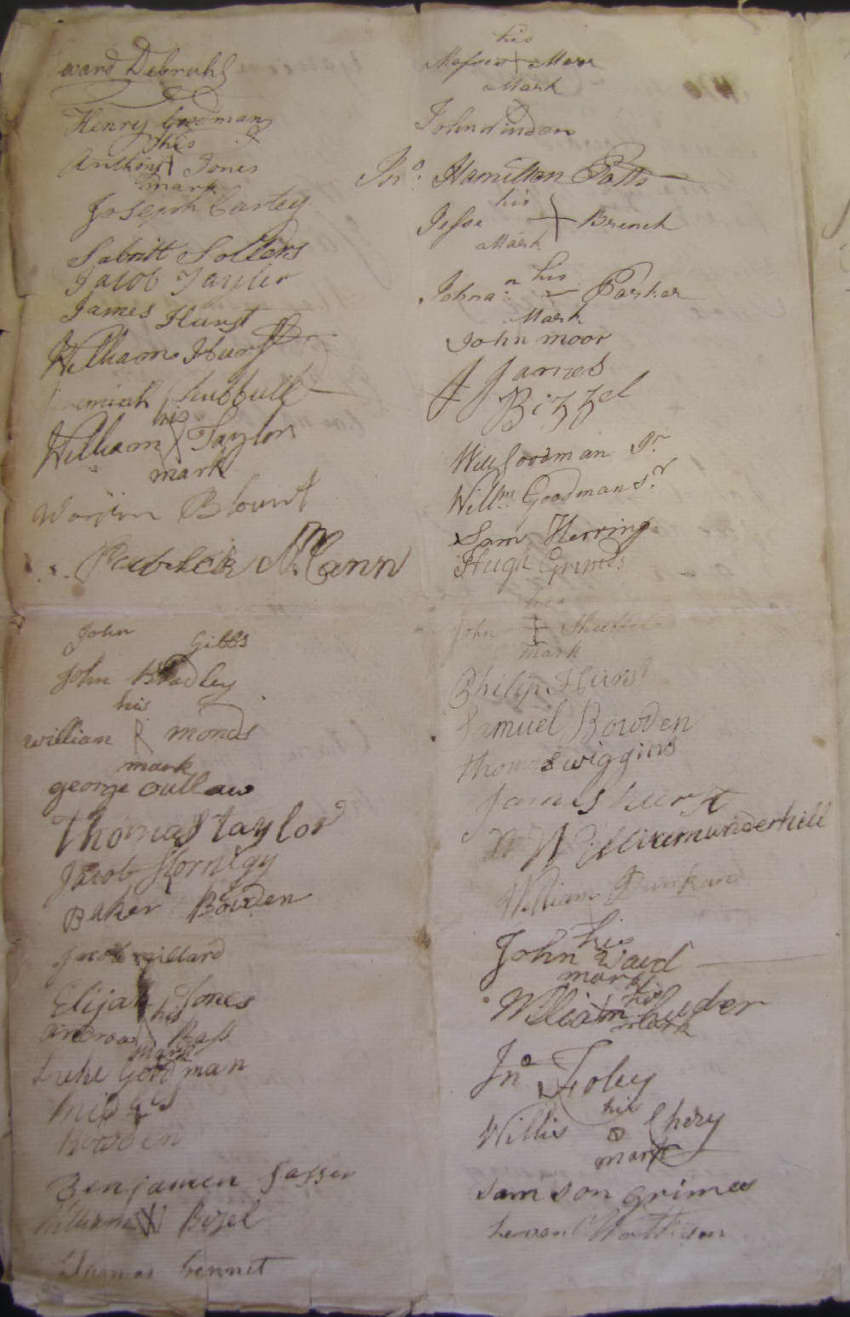 ward Debruhl
Henry Goodman
his
Anthony Jones
mark
Joseph Carley
Sabritt Sollers
Jacob Taylor
James Hurst
William Hurst
miah hubbull
his
William X Taylor
mark
Blount
Patrick McCann
John Gibbs
John Bradley
his
william R monds
mark
george outlaw
Thomas taylor
Jacob Hornigy
Baker Bowden
Jacob willard
Elijah Jones
his
Bass
mark
Luke Goodman
Bowden
Benjamen Sasser
William Bizel
bennet
his
Marr
Mark
John
Jno. Hamilton Potts
his
Jesse Branch
Mark
his
Johnan Parker
Mark
John moor
James
Bizzel
Will Goodman Jr
Willm. Goodman Sr
Sam Herring
Hugh Grimes
his
John
mark
Philip Hurst
Samuel Bowden
Thomas wiggins
James hurst
William underhill
William Dunkan
his
John Ward
mark
his
William
mark
Jno Foley
his
Willis O Chery
mark
Samson grimes